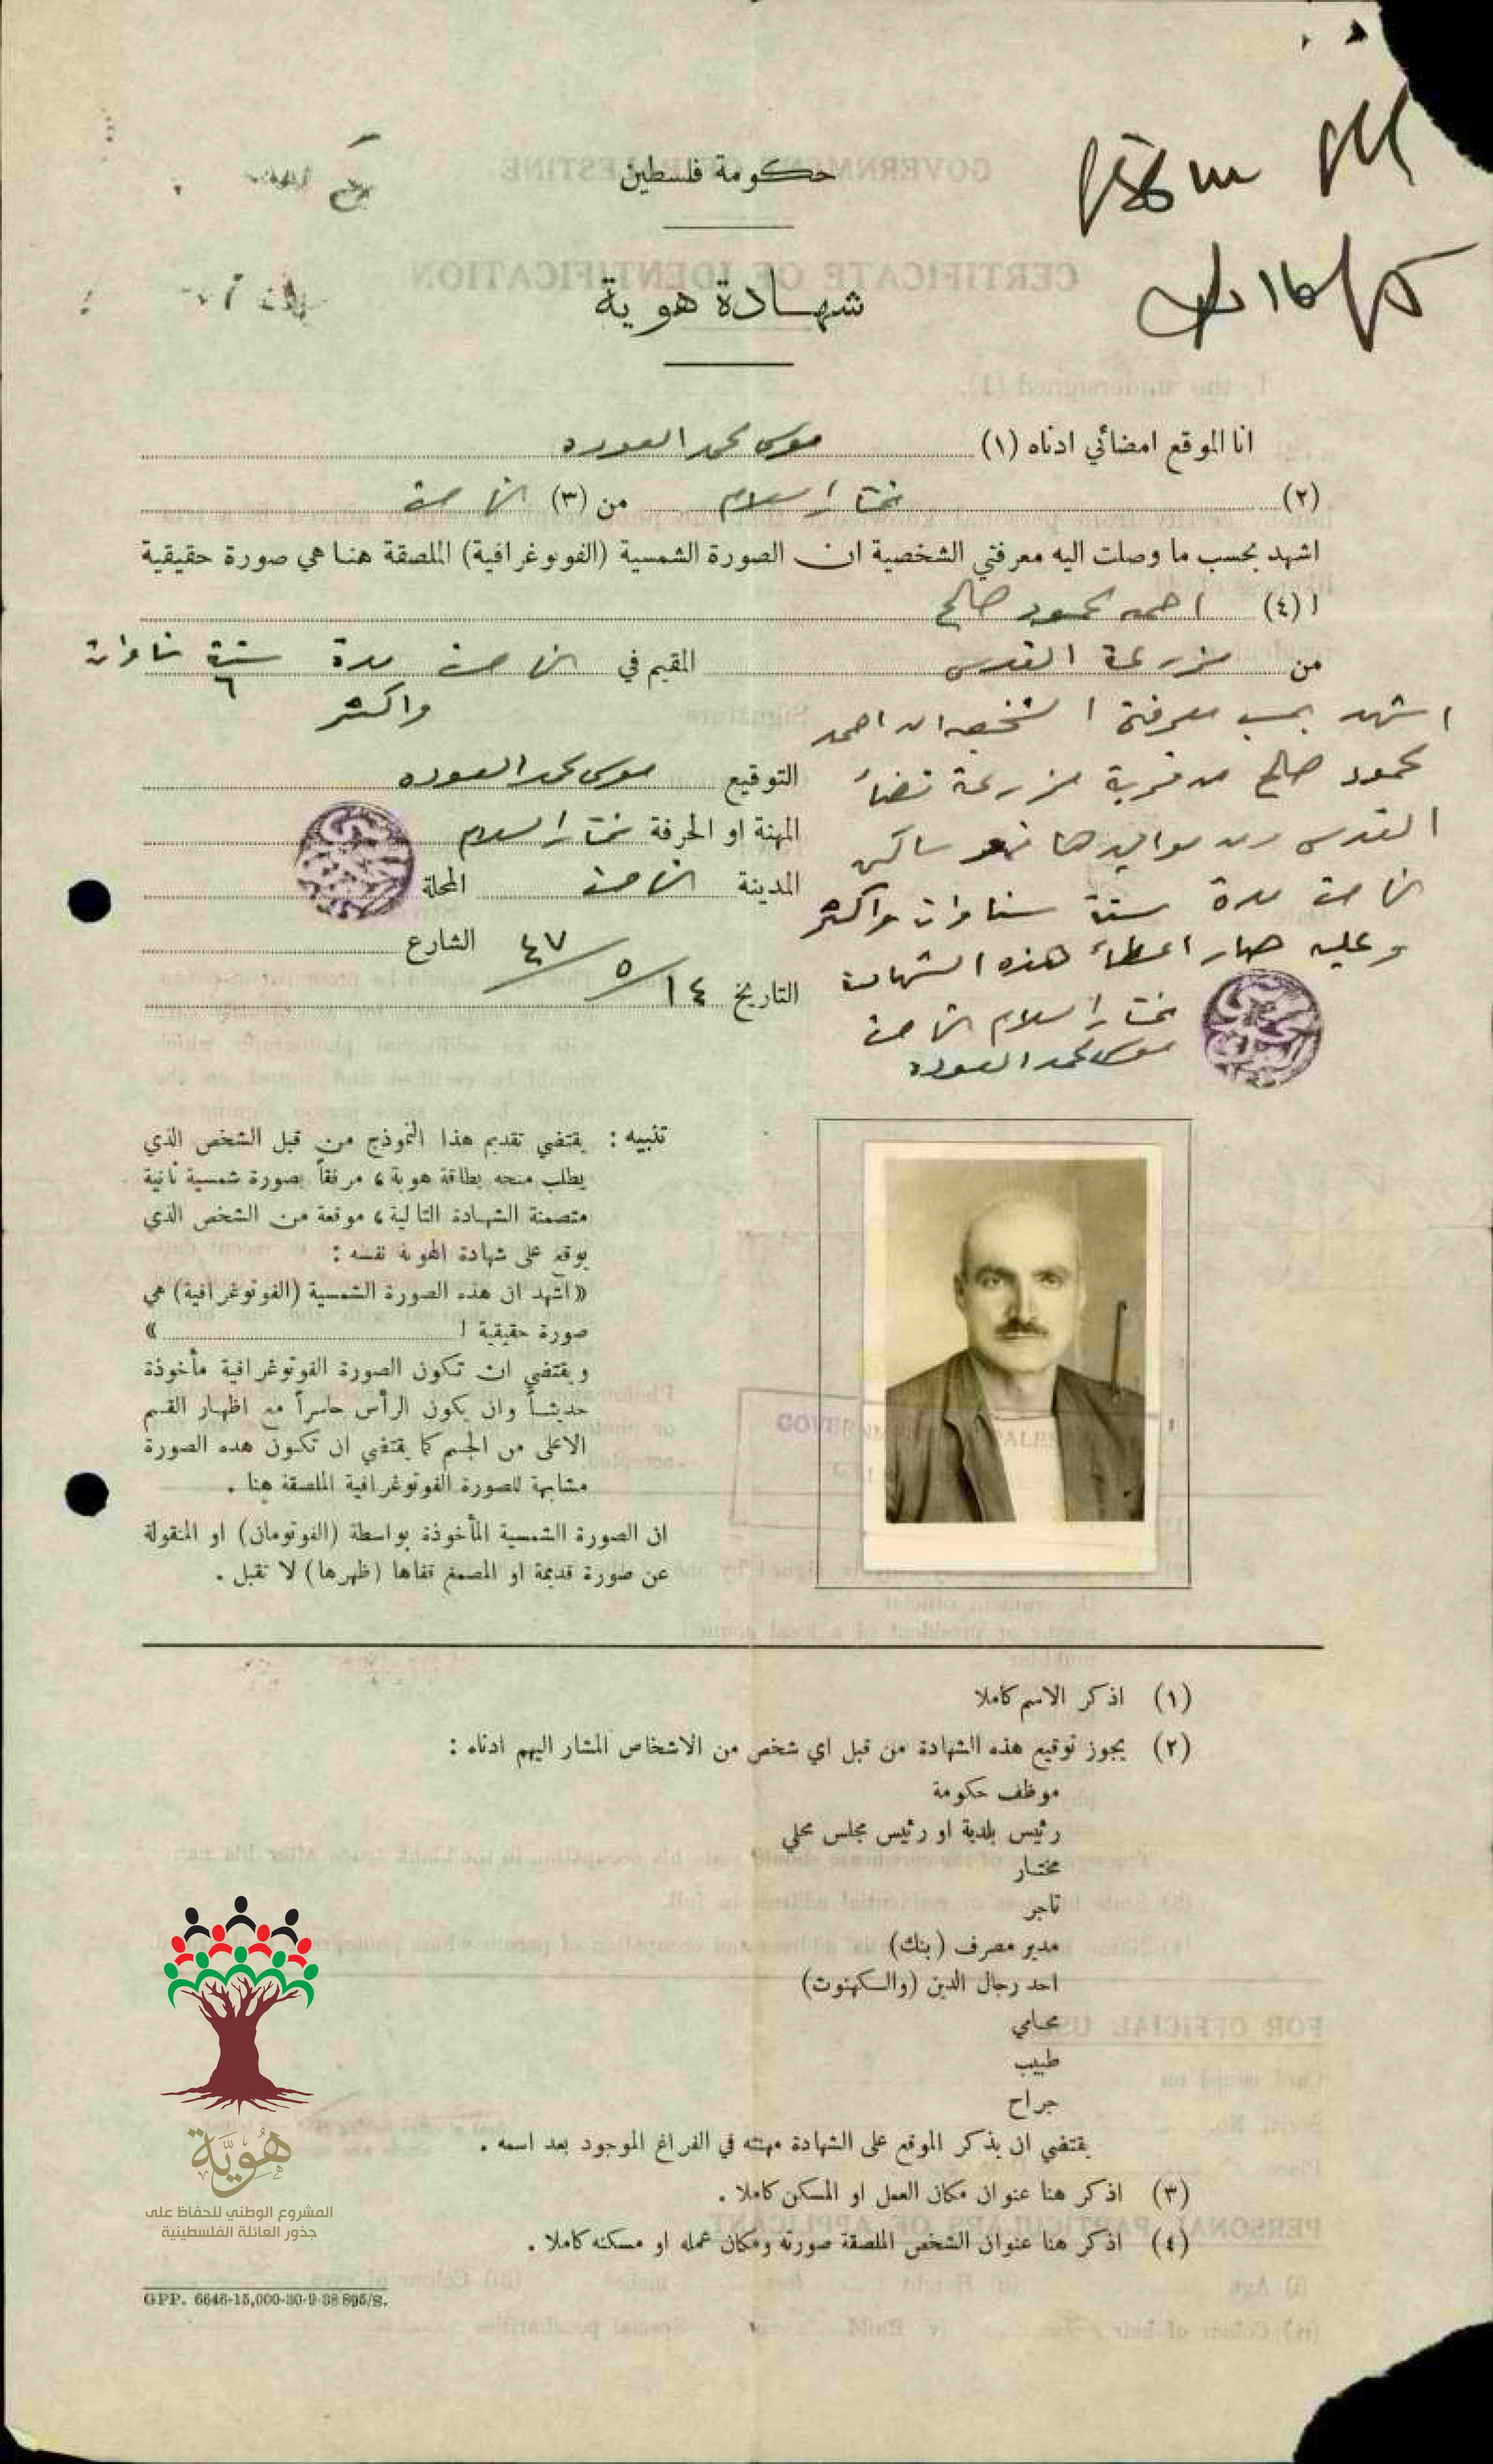 حكومة فلسطين
شهادة هوية
انا الموقع امضائي ادناه (١) موسى محمد العوده
(٢) مختار اسلام من (٣) الناصرة
اشهد بحسب ما وصلت اليه معرفتي الشخصية ان الصورة الشمسية (الفوتوغرافية) الملصقة هنا هي صورة حقيقية
ا (٤) احمد محمود صالح
من مزرعة القدس المقيم في الناصرة مدة ستة سناوات
٦
واكثر
اشهد بحسب معرفتي الشخصيه ان احمد
محمود صالح من قرية مزرعة قضاء
القدس ومن مواليدها فهو ساكن
الناصرة مدة ستة سناوات واكثر
وعليه صار اعطاء هذه الشهادة
مختار اسلام الناصرة
موسى محمد العوده
التوقيع موسى محمد العوده
المهنة او الحرفة مختار اسلام
المدينة الناصرة المحلة
الشارع
التاريخ ١٤/٥/٤٧
تنبيه : يقتضي تقديم هذا النموذج من قبل الشخص الذي
يطلب منحه بطاقة هوية ، مرفقاً بصورة شمسية ثانية
متضمنة الشهادة التالية ، موقعة من الشخص الذي
يوقع على شهادة الهوية نفسه :
«اشهد ان هذه الصورة الشمسية (الفوتوغرافية) هي
صورة حقيقية ا »
ويقتضي ان تكون الصورة الفوتوغرافية مأخوذة
حديثاً وان يكون الرأس حاسراً مع اظهار القسم
الاعلى من الجسم كما يقتضي ان تكون هذه الصورة
مشابهة للصورة الفوتوغرافية الملصقة هنا .
ان الصورة الشمسية المأخوذة بواسطة (الفوتومان) او المنقولة
عن صورة قديمة او المصمغ قفاها (ظهرها) لا تقبل .
(١) اذكر الاسم كاملا
(٢) يجوز توقيع هذه الشهادة من قبل اي شخص من الاشخاص المشار اليهم ادناه :
موظف حكومة
رئيس بلدية او رئيس مجلس محلي
مختار
تاجر
مدير مصرف (بنك)
احد رجال الدين (والكهنوت)
محامي
طبيب
جراح
يقتضي ان يذكر الموقع على الشهادة مهنته في الفراغ الموجود بعد اسمه .
(٣) اذكر هنا عنوان مكان العمل او المسكن كاملا .
(٤) اذكر هنا عنوان الشخص الملصقة صورته ومكان عمله او مسكنه كاملا .
هُوِيَّة
المشروع الوطني للحفاظ على
جذور العائلة الفلسطينية
GPP. 6646-15,000-30-9-38 895/S.